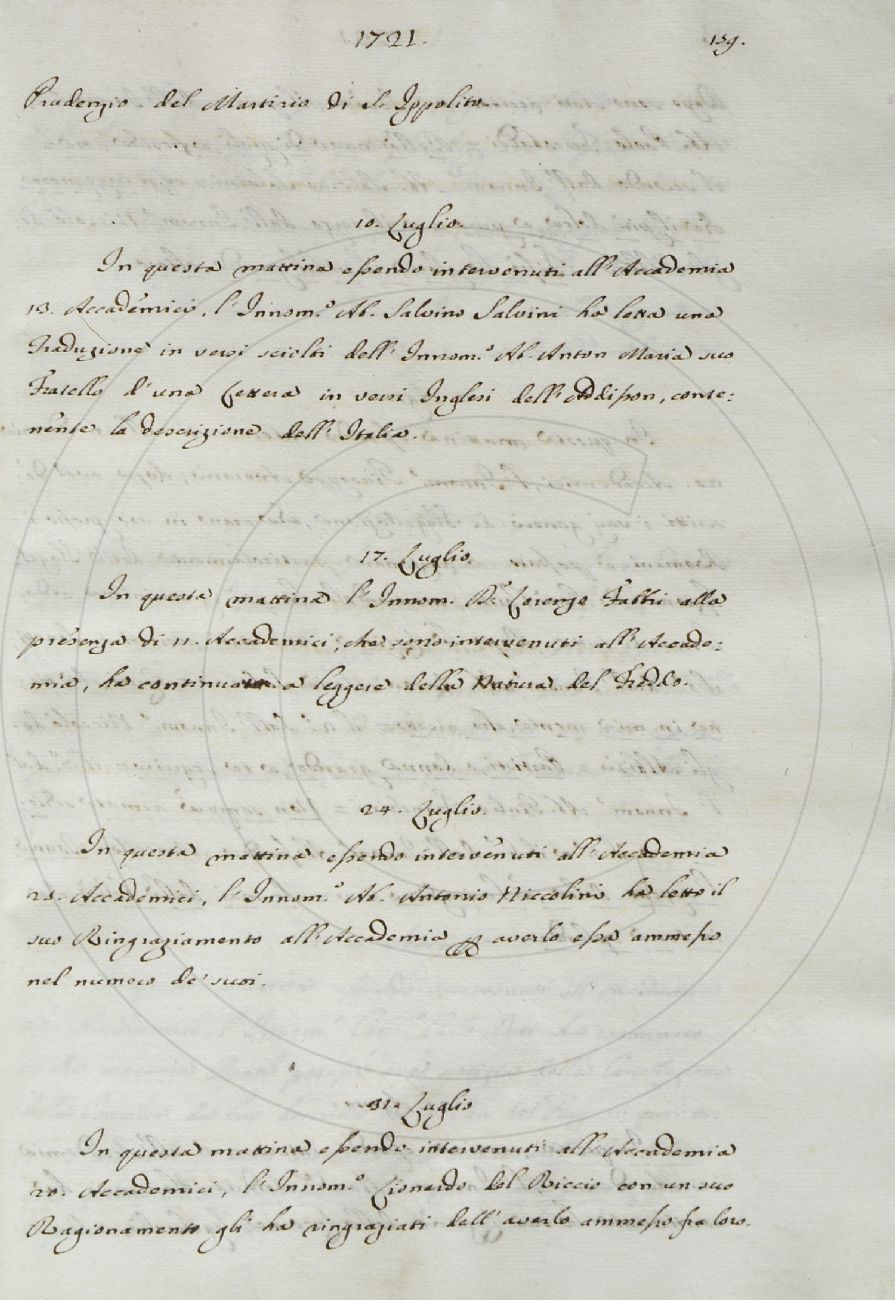 1721.
159.
Prudenzio del Martirio di S. Ippolito.
10. Luglio.
In questa mattina essendo intervenuti all'Accademia
13. Accademici, l'Innom.º Ab. Salvino Salvini ha letta una
Traduzione in versi sciolti dell'Innom.º Ab. Anton Maria suo
Fratello d'una Lettera in versi Inglesi dell'Addisson, conte:
nente la descrizione dell'Italia.
17. Luglio.
In questa mattina l'Innom. D.r Lorenzo Fabbri alla
presenza di 11. Accademici, che sono intervenuti all'Accade:
mia, ha continuato a leggere della Natura del Freddo.
24. Luglio.
In questa mattina essendo intervenuti all'Accademia
Accademici, l'Innom.º Ab. Antonio Niccolini ha letto il
suo Ringraziamento all'Accademia averlo essa ammesso
nel numero de' suoi.
31. Luglio
In questa mattina essendo intervenuti all'Accademia
20. Accademici, l'Innom.º Lionardo del Riccio con un suo
Ragionamento gli ha ringraziati dell'averlo ammesso fra loro.